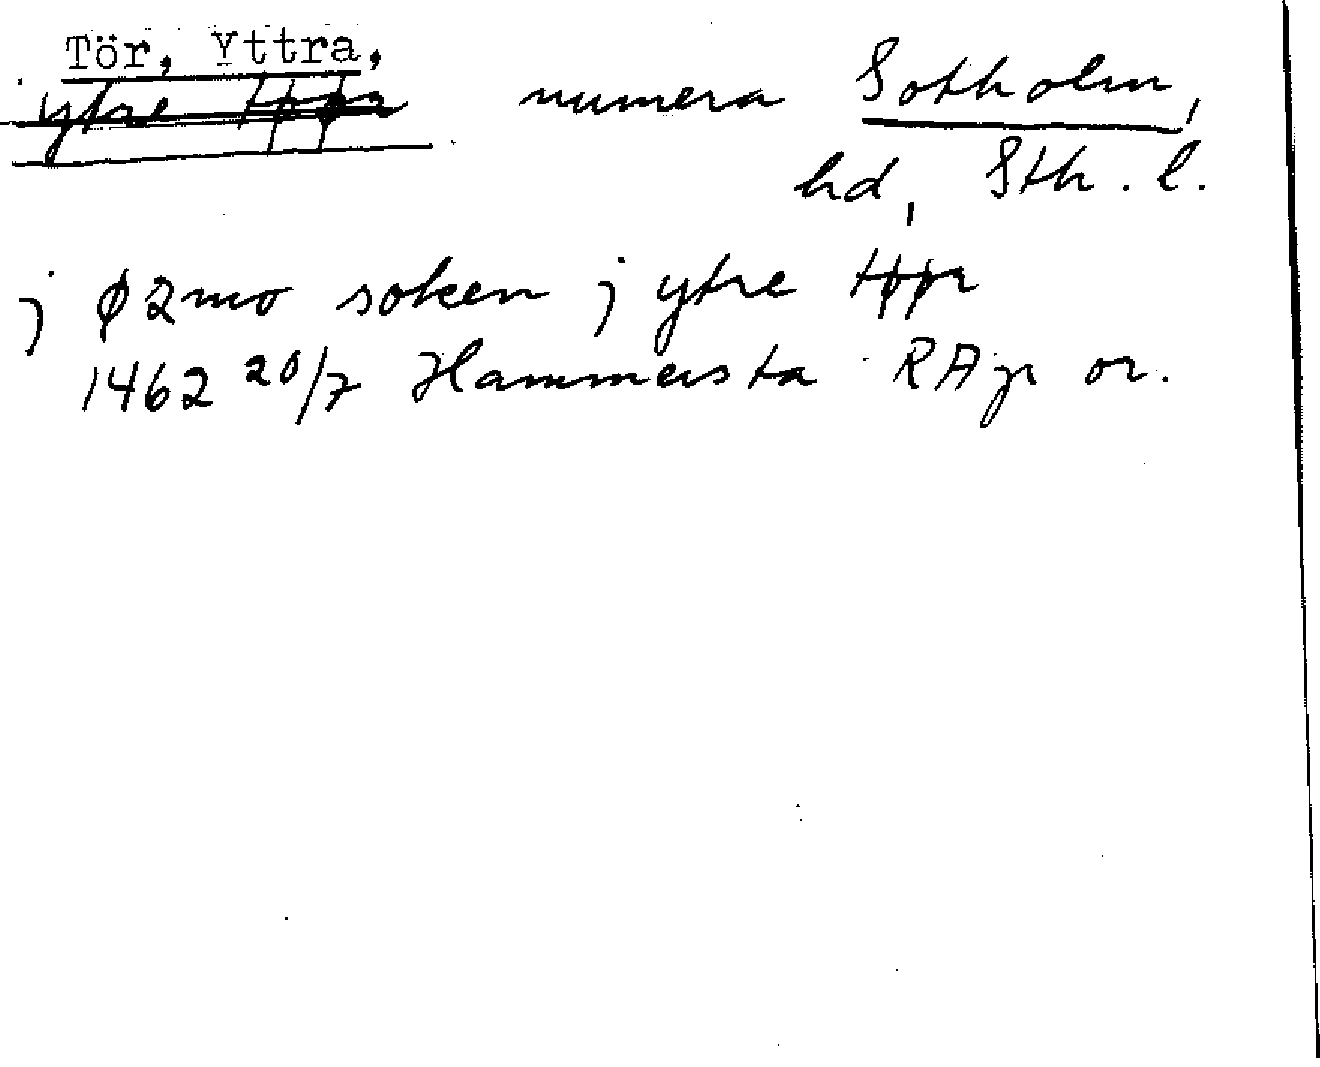 Tör, Yttra,
ytre tøør numera Sotholm,
hd, Sth. l.
j ø2mo soken j ytre tøør
1462 20/7 Hammersta RAp or.